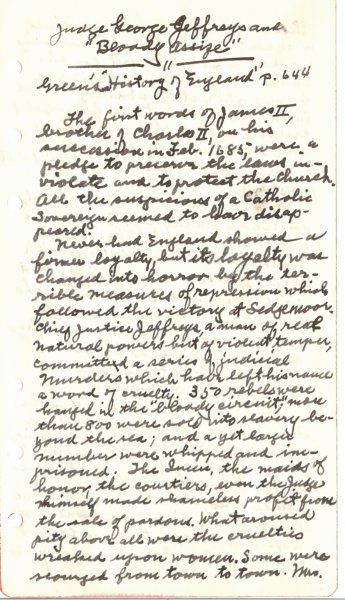 Judge George Jeffreys and
"Bloody Assize"
Green's "History of England" p. 644
The first words of James II,
brother of Charles II, on his
succession in Feb. 1685 were a
pledge to preserve the laws in-
violate and to protect the Church.
All the suspicions of a Catholic
Sovereign seemed to have disap-
peared.
Never had England showed a
firmer loyalty, but its loyalty was
changed into horror by the ter-
rible measures of repression which
followed the victory at Sedgemoor.
Chief Justice Jeffreys, a man of real
natural powers but of violent temper,
committed a series of judicial
murders which have left his name
a word of cruelty. 350 rebels were
hanged in the "bloody circuit," more
than 800 were sold into slavery be-
yond the sea; and a yet larger
number were whipped and im-
prisoned. The Queen, the maids of
honor, the courtiers, even the Judge
himself made shameless profit from
the sale of pardons. What aroused
pity above all were the cruelties
wreaked upon women. Some were
scourged from town to town. Mrs.